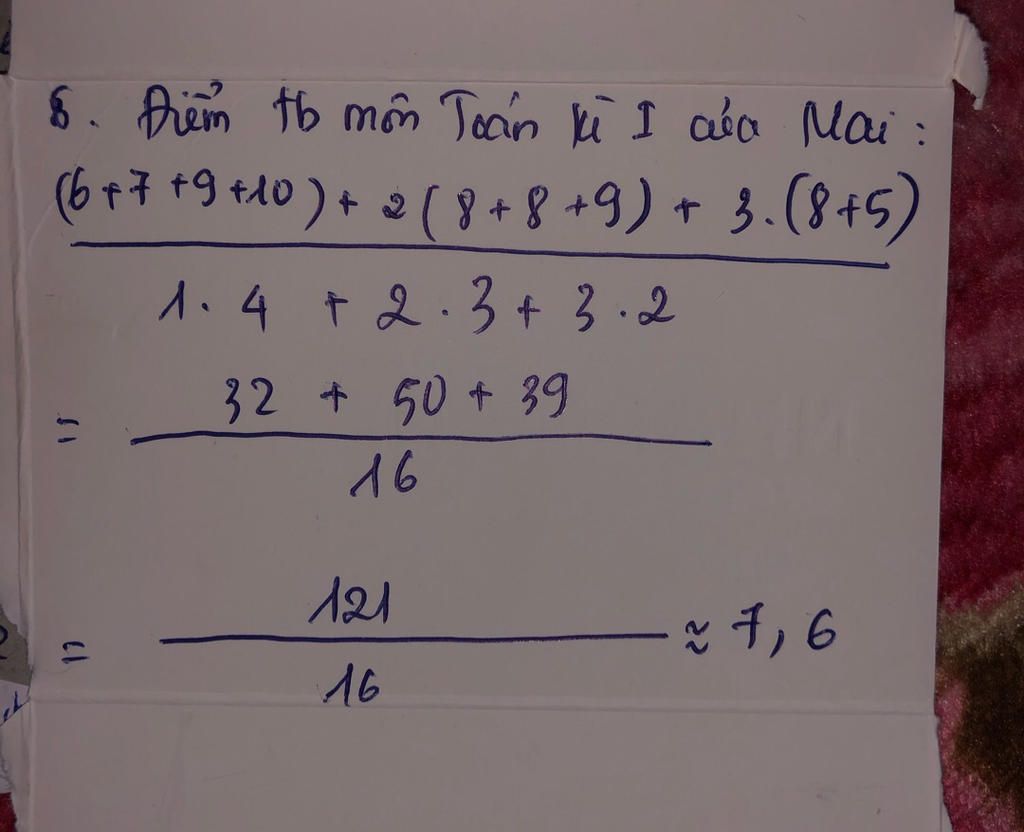 8. Điểm tb môn Toán kì I của Mai :
(6+7+9+10) + 2(8+8+9) + 3.(8+5)
1.4 + 2.3 + 3.2
= 32 + 50 + 39
16
= 121 ≈ 7,6
16